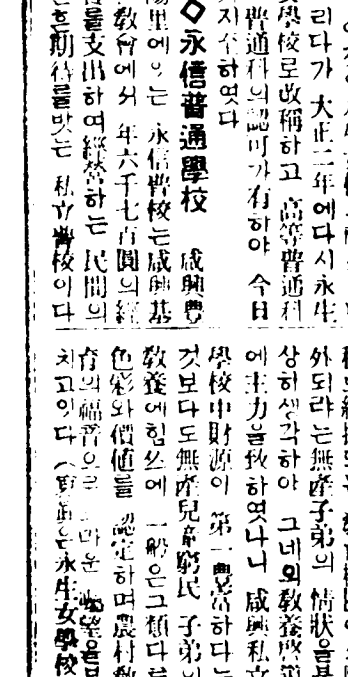 리다가 大正二年에다시永生
女學校로改稱하고 高等普通科
普通科의認可가有하야 今日
까지至하엿다
◇永信普通學校 咸興豊
陽里에잇는 永信普校는咸興基
敎會에서 年六千七百圓의經
를支出하며經營하는 民間의
은期待를밧는 私立普校이다
외되랴는無産子弟의 情狀을
상히생각하야 그네의敎養啓
에主力을致하엿나니 咸興私立
學校中財源이 第一豊富하다는
것보다도無産兒童窮民 子弟의
敎養에힘쓰에 一般은그類다른
色彩와價値를 認定하며農村敎
育의福音으로 마운 望을
치고잇다 (寫眞은永生女學校